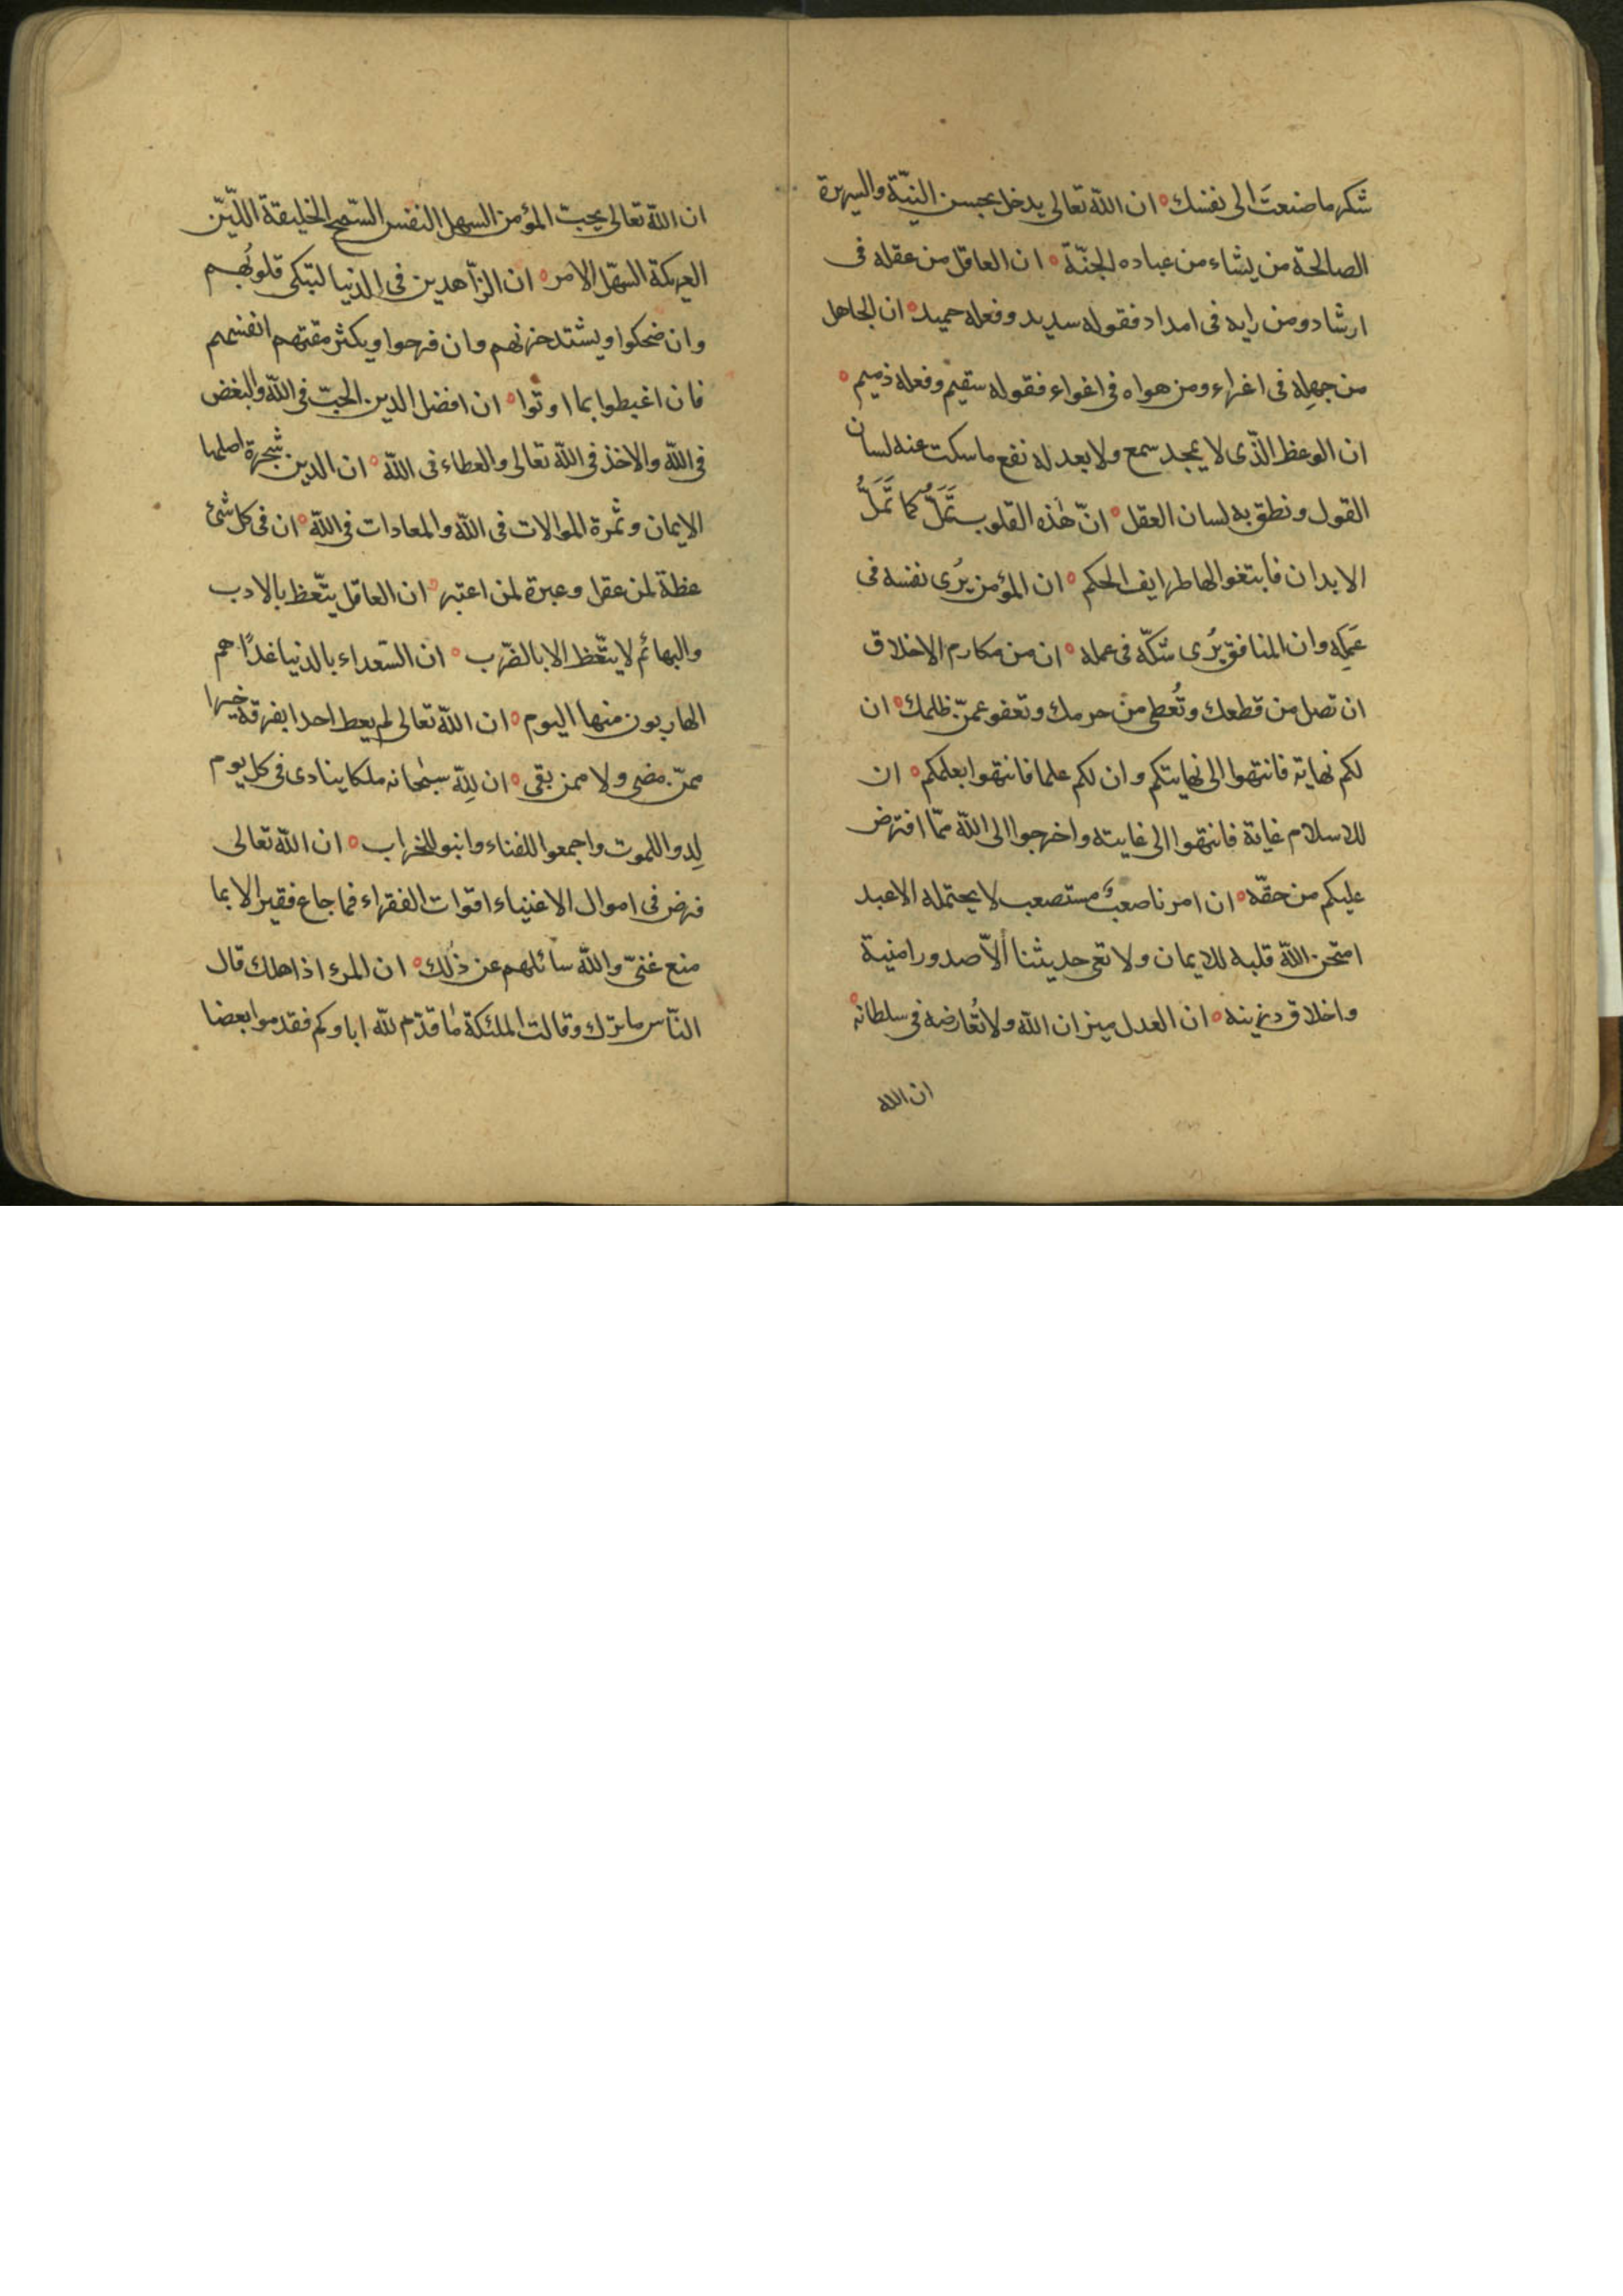 شكر ما صنعتَ الى نفسك ان اللّه تعالى يدخل بحسن النيّة والسيرة
الصالحة من يشاء من عباده الجنّة ان العاقل من عقله فى
ارشاد ومن رايه فى امداد فقوله سديد وفعله حميد ان الجاهل
من جهله فى اغراء ومن هواه فى اغواء فقوله سقيم وفعله ذميم
ان الوعظ الذّى لا يمجد سمع ولا يعدله نفع ما سكت عنه لسان
القول ونطق به لسان العقل انّ هٰذه القلوب تَمَلُّ كما تَمَلُّ
الابدان فابتغوا لها طرايف الحكم ان المؤمن يُرى نفسه فى
عَمَلِه وان المنافق يُرى شكّه فى عمله ان من مكارم الاخلاق
ان تصل من قطعك وتُعطى من حرمك وتعفو عمّن ظلمك ان
لكم نهاية فانتهوا الى نهايتكم وان لكم علما فانتهوا بعلمكم ان
للاسلام غاية فانتهوا الى غايته واخرجوا الى اللّه ممّا افترض
عليكم من حقّه ان امرنا صعبٌ مستصعب لا يحتمله الا عبد
امتحن اللّه قلبه للايمان ولا تعى حديثنا ألاّ صدور امنية
واخلاق رزينه ان العدل ميزان اللّه ولا تُعارضه فى سلطانه
ان الله
ان اللّه تعالى يحبّ المؤمن السهل النفس السّمح الخليقة الليّن
العريكة السّهل الامر ان الزّاهدين فى الدنيا لتبكى قلوبُهم
وان ضحكوا ويشتد حزنهم وان فرحوا ويكثر مقتهم انفسهم
فان اغبطوا بما اوتوا ان افضل الدين الحبّ فى اللّه والبغض
فى اللّه والاخذ فى اللّه تعالى والعطاء فى اللّه ان الدين شجرة اصلها
الايمان وثمرة الموالات فى اللّه والمعادات فى اللّه ان فى كل شئ
عظة لمن عقل وعبرة لمن اعتبر ان العاقل يتّعظ بالادب
والبهائم لا يتّعظ الا بالضّرب ان السّعداء بالدنيا غدًا هم
الهاربون منها اليوم ان اللّه تعالى لم يعط احدا بفرقة خيرا
ممّن مضى ولا ممن بقى ان للّه سبحانه ملكا ينادى فى كل يوم
لِدوا للموت واجمعوا للفناء وابنو للخراب ان اللّه تعالى
فرض فى اموال الاغنياء اقوات الفقراء فما جاع فقير الا بما
منع غنىّ واللّه سائلهم عن ذٰلك ان المرء اذا هلك قال
النّاس ما ترك وقالت الملئكة ما قدّم للّه اباوكم فقدموا بعضا